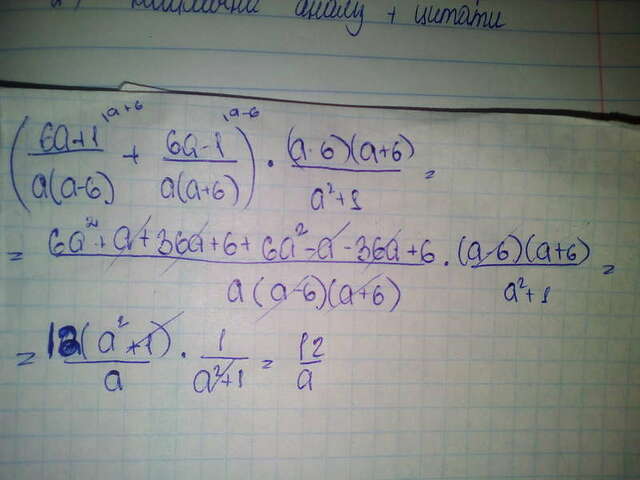 аналу + цитати
,a+6 ,a-6
( 6a+1 / a(a-6) + 6a-1 / a(a+6) ) · (a-6)(a+6) / a²+1 =
= 6a²+a+36a+6+6a²-a-36a+6 / a(a-6)(a+6) · (a-6)(a+6) / a²+1 =
= 12(a²+1) / a · 1 / a²+1 = 12 / a